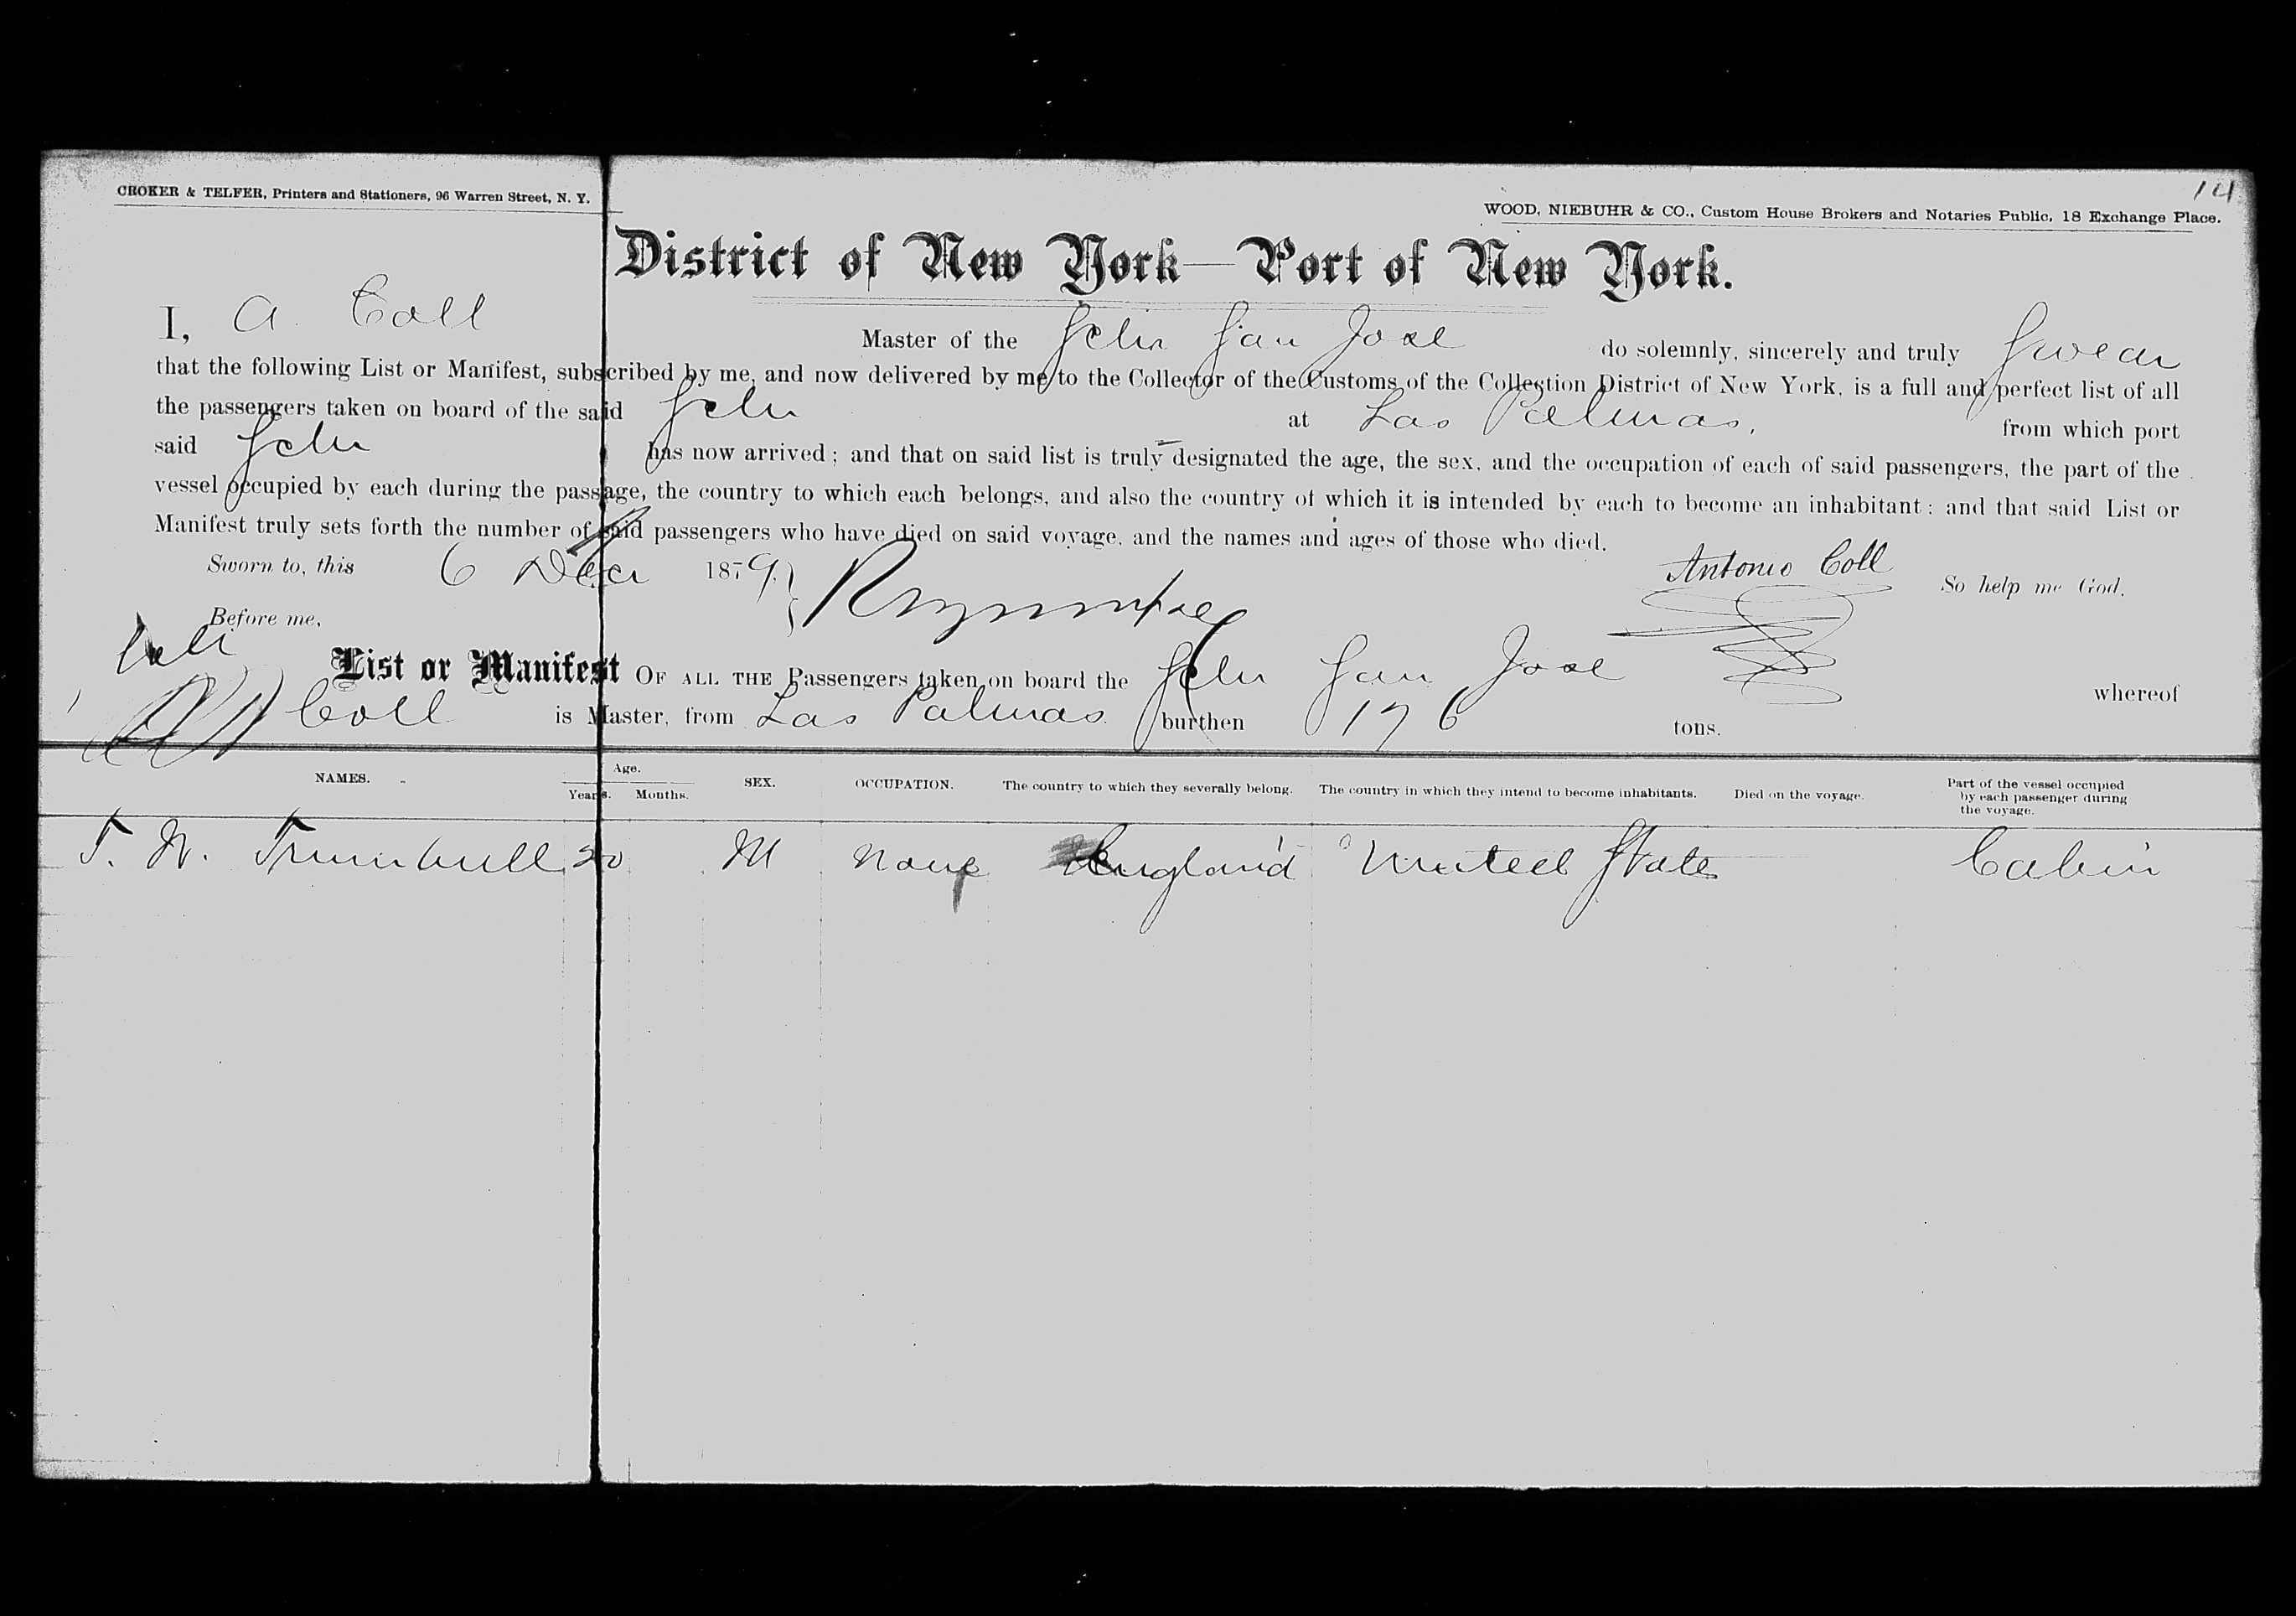 14
CROKER & TELFER, Printers and Stationers, 96 Warren Street, N. Y.
WOOD, NIEBUHR & CO., Custom House Brokers and Notaries Public, 18 Exchange Place.
District of New York—Port of New York.
I, A. Coll Master of the Schr San Jose do solemnly, sincerely and truly Swear
that the following List or Manifest, subscribed by me, and now delivered by me to the Collector of the Customs of the Collection District of New York, is a full and perfect list of all
the passengers taken on board of the said Schr at Las Palmas, from which port
said Schr has now arrived; and that on said list is truly designated the age, the sex, and the occupation of each of said passengers, the part of the
vessel occupied by each during the passage, the country to which each belongs, and also the country of which it is intended by each to become an inhabitant; and that said List or
Manifest truly sets forth the number of said passengers who have died on said voyage, and the names and ages of those who died.
Sworn to, this 6 Decr 1879. Antonio Coll So help me God.
Before me,
List or Manifest OF ALL THE Passengers taken on board the Schr San Jose whereof
Coll is Master, from Las Palmas burthen 176 tons.
NAMES. Age. Years. Months. SEX. OCCUPATION. The country to which they severally belong. The country in which they intend to become inhabitants. Died on the voyage. Part of the vessel occupied by each passenger during the voyage.
T. W. Trumbull 20 M None England United States Cabin